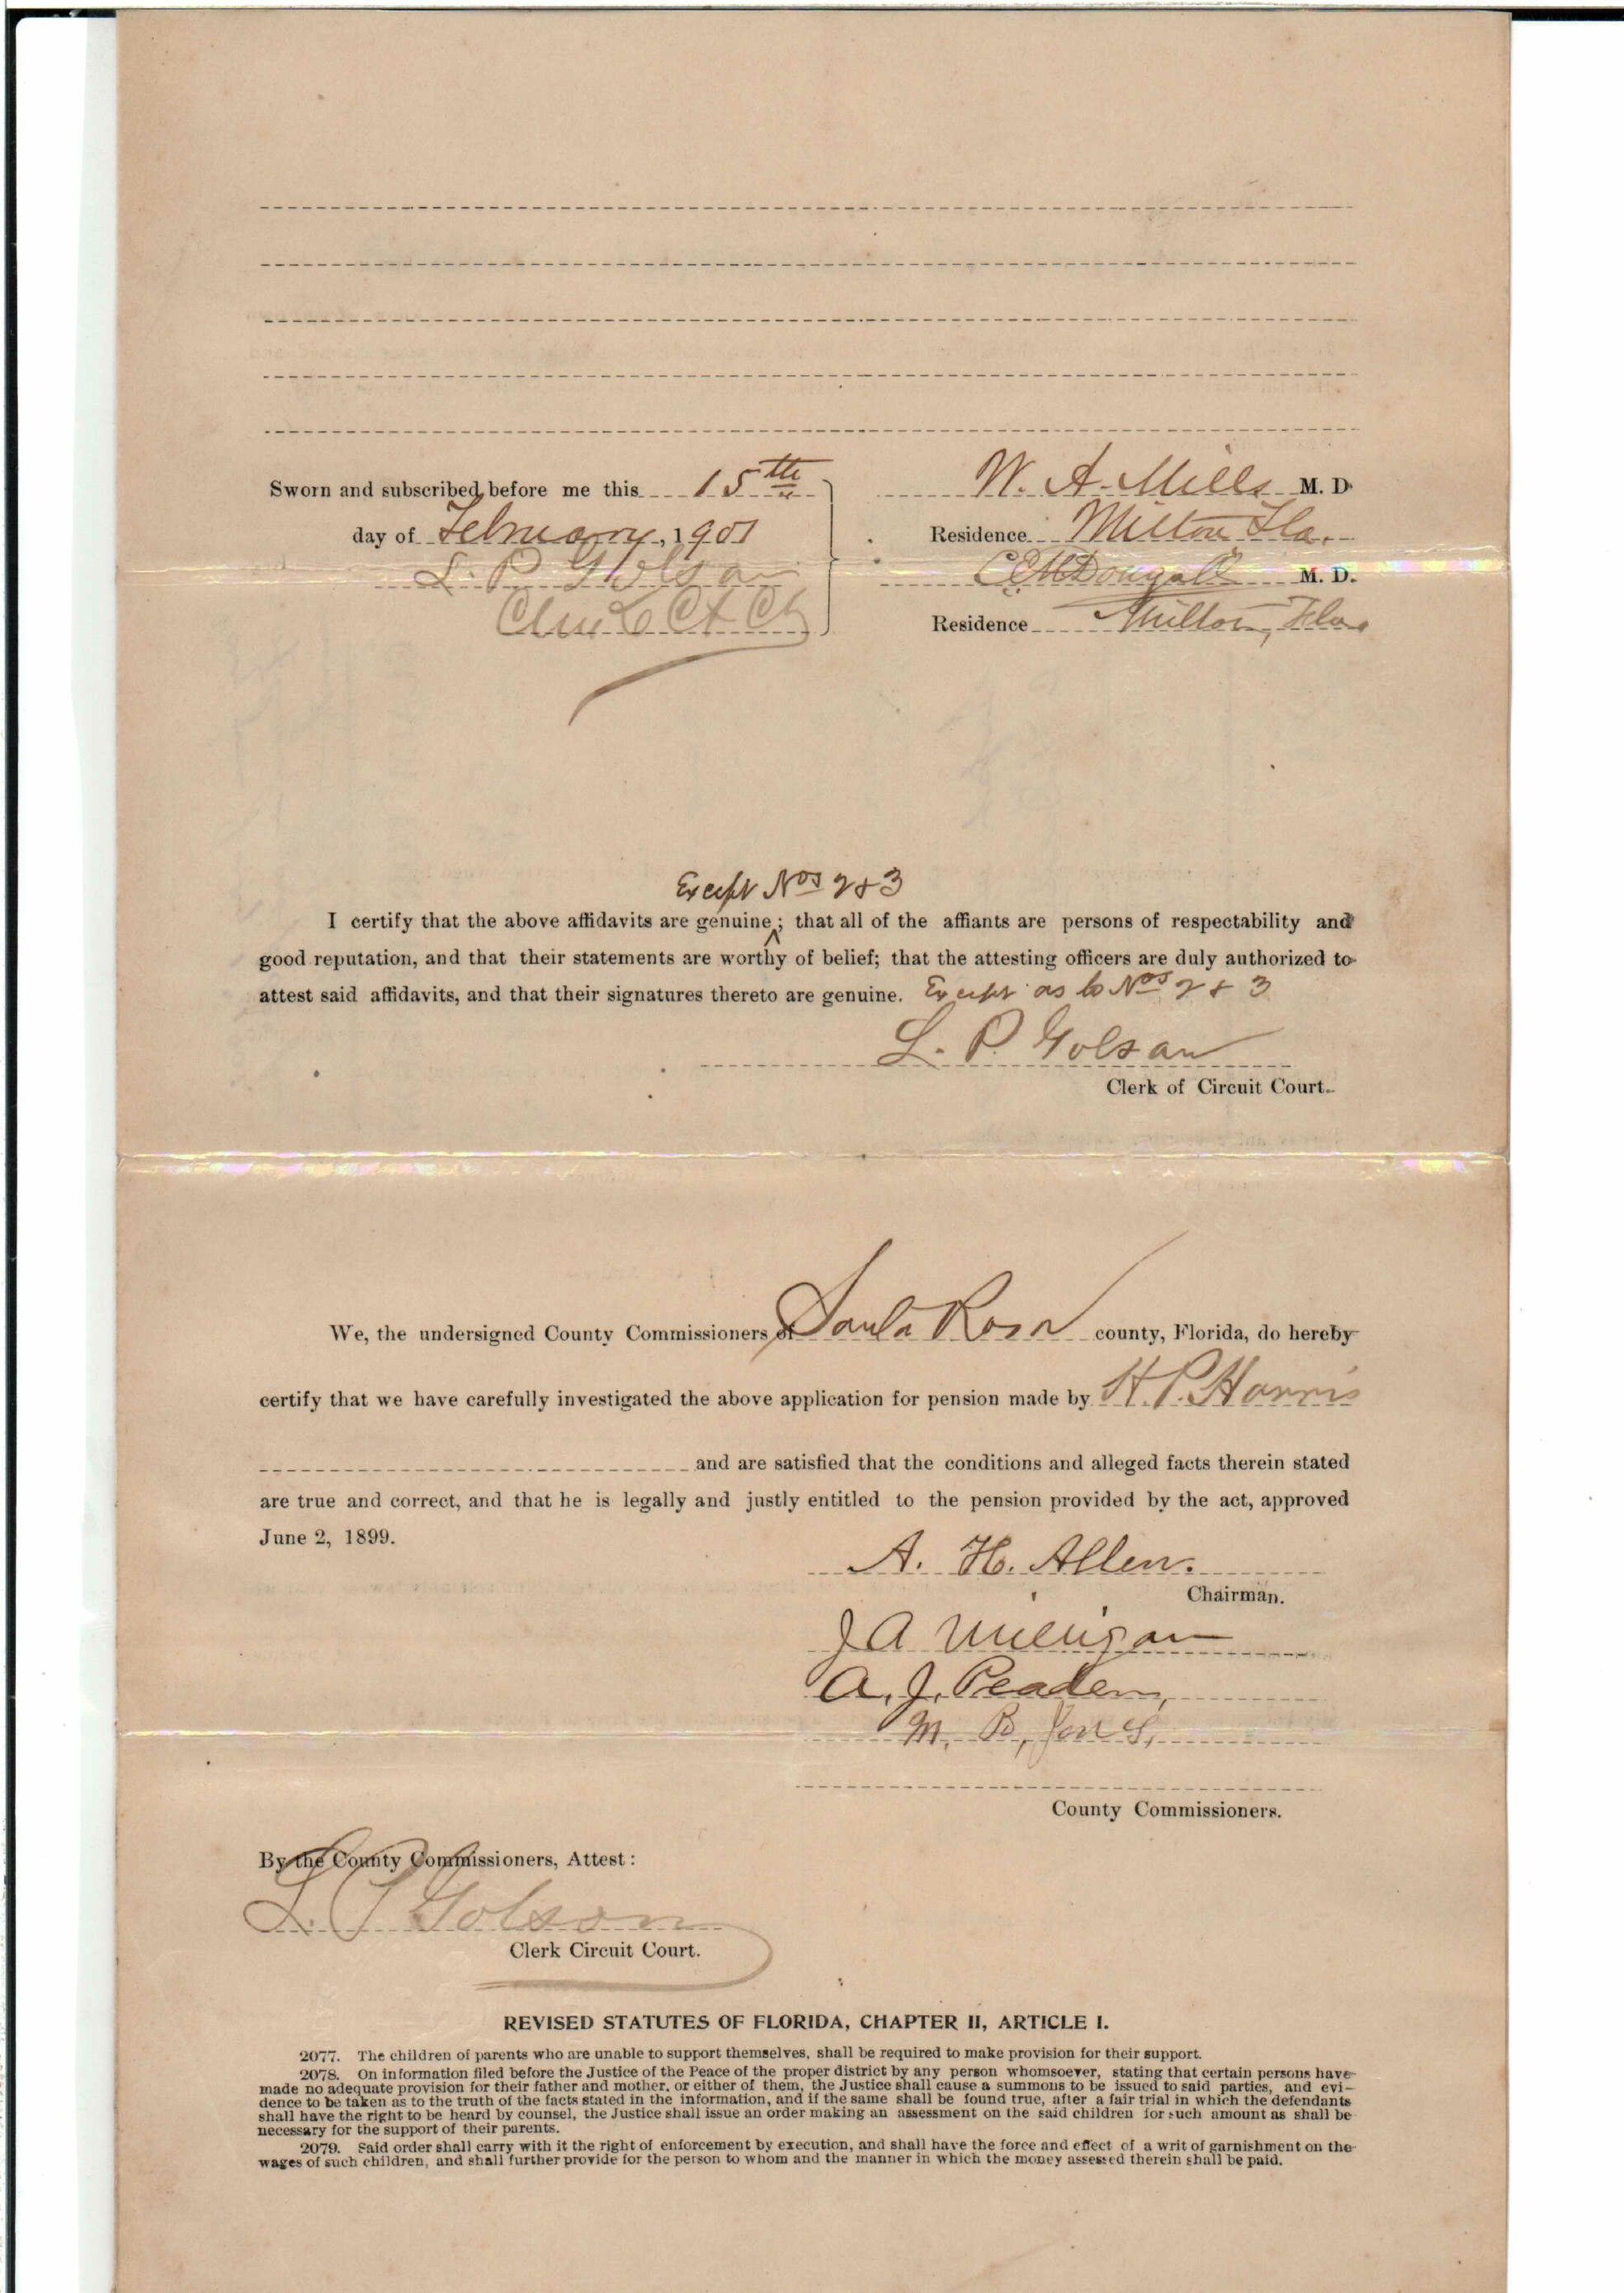 Sworn and subscribed before me this 15th
day of February, 1901
L. P. Golson
Clerk Ct Ct
W. A. Mills M. D.
Residence Milton Fla.
C E McDougall M. D.
Residence Milton, Fla.
Except Nos 2 & 3
I certify that the above affidavits are genuine ; that all of the affiants are persons of respectability and
good reputation, and that their statements are worthy of belief; that the attesting officers are duly authorized to
attest said affidavits, and that their signatures thereto are genuine. Except as to Nos 2 & 3
L. P. Golson
Clerk of Circuit Court.
We, the undersigned County Commissioners of Santa Rosa county, Florida, do hereby
certify that we have carefully investigated the above application for pension made by H. P. Harris
and are satisfied that the conditions and alleged facts therein stated
are true and correct, and that he is legally and justly entitled to the pension provided by the act, approved
June 2, 1899.
A. H. Allen.
Chairman.
J A Milligan
A. J. Peaden,
M. B, Jones,
County Commissioners.
By the County Commissioners, Attest:
L. P. Golson
Clerk Circuit Court.
REVISED STATUTES OF FLORIDA, CHAPTER II, ARTICLE I.
2077. The children of parents who are unable to support themselves, shall be required to make provision for their support.
2078. On information filed before the Justice of the Peace of the proper district by any person whomsoever, stating that certain persons have
made no adequate provision for their father and mother, or either of them, the Justice shall cause a summons to be issued to said parties, and evi-
dence to be taken as to the truth of the facts stated in the information, and if the same shall be found true, after a fair trial in which the defendants
shall have the right to be heard by counsel, the Justice shall issue an order making an assessment on the said children for such amount as shall be
necessary for the support of their parents.
2079. Said order shall carry with it the right of enforcement by execution, and shall have the force and effect of a writ of garnishment on the
wages of such children, and shall further provide for the person to whom and the manner in which the money assessed therein shall be paid.